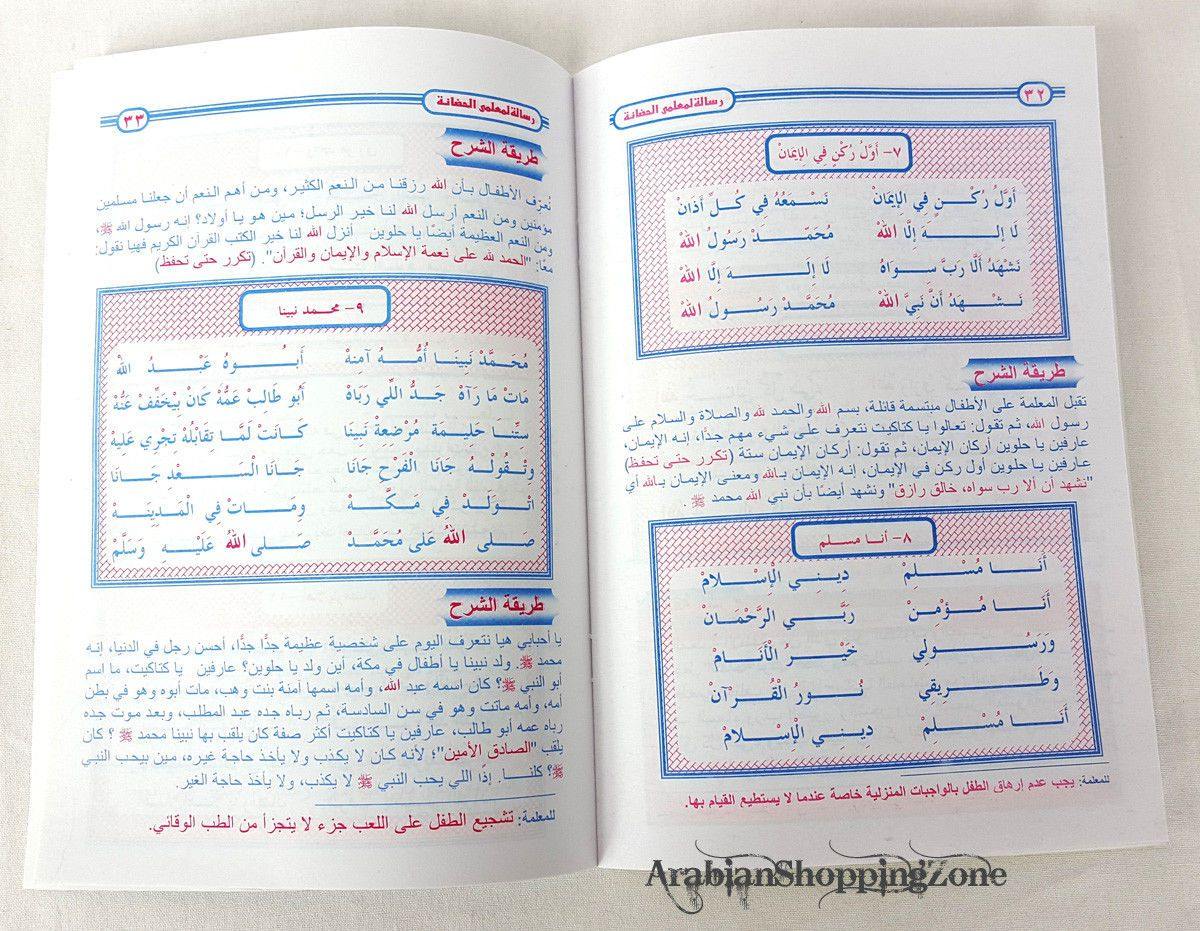 رسالة لمعلمى الحضانة
٣٢
٧- أَوَّلُ رُكْنٍ فِي الإِيمَانْ
أَوَّلُ رُكْـــنٍ فِي الإِيمَانْ نَسْـمَعُهُ فِي كُـلِّ أَذَانْ
لَا إِلــــــــهَ إِلَّا اللهُ مُحَمَّــــدْ رَسُولُ اللهُ
نَشْهَدُ أَلَّا رَبَّ سِـــوَاهُ لَا إِلَــــــــهَ إِلَّا اللهُ
نَــشْـــهَدُ أَنَّ نَبِيَّ اللهُ مُحَمَّدْ رَسُــولُ اللهُ
طريقة الشرح
تقبل المعلمة على الأطفال مبتسمة قائلة، بسم الله والحمد لله والصلاة والسلام على
رسول الله، ثم تقول: تعالوا يا كتاكيت نتعرف على شيء مهم جدًا، إنه الإيمان،
عارفين يا حلوين أركان الإيمان، ثم تقول: أركان الإيمان ستة (تكرر حتى تحفظ)
عارفين يا حلوين أول ركن في الإيمان، إنه الإيمان بالله ومعنى الإيمان بـالله أي
"نشهد أن ألا رب سواه، خالق رازق" ونشهد أيضًا بأن نبي الله محمد ﷺ .
٨- أنـا مسـلم
أَنَــــا مُسْــــلِمْ دِيـنِي الْإِسْـــلامْ
أَنَــــا مُـــؤْمِـنْ رَبَّـي الرَّحْمَـانْ
وَرَسُـــــــولِي خَيْــــرُ الْأَنَــــامْ
وَطَـــــــرِيقِي نُــــورُ الْقُــرْآنْ
أَنَــــا مُسْــــلِمْ دِيـنِـي الْإِسْـــلامْ
للمعلمة: يجب عدم إرهاق الطفل بالواجبات المنزلية خاصة عندما لا يستطيع القيام بها.
رسالة لمعلمى الحضانة
٣٣
طريقة الشرح
نُعرّف الأطفال بـأن الله رزقنا من النعم الكثير، ومن أهم النعم أن جعلنا مسلمين
مؤمنين ومن النعم أرسل الله لنا خير الرسل؛ مين هو يا أولاد؟ إنه رسول الله ﷺ،
ومن النعم العظيمة أيضًا يا حلوين أنزل الله لنا خير الكتب القرآن الكريم فهيا نقول
معًا: "الحمد لله على نعمة الإسلام والإيمان والقرآن". (تكرر حتى تحفظ)
٩- محمـد نبينا
مُحَمَّدْ نَبِينَا أُمُّــهُ آمِنهْ أَبُــــوهُ عَبْـــدُ الله
مَاتْ مَا رَآهْ جَـدُّ اللِّي رَبَاهْ أَبُو طَالِبْ عَمُّهُ كَانْ بِيْخَفِّفْ عَنُّهْ
سِتِّنَـا حَلِيـمَة مُرْضِعِةْ نَبِينَا كَـانَتْ لَمَّـا تِقَابْلُهْ تِجْرِي عَلِيهْ
وِتْقُولُــهْ جَانَا الْفَرَحِ جَانَا جَـانَا الْسَــــعْدِ جَـــانَا
اتْوَلَـدْ فِي مَكَّــهْ وِمَـــاتْ فِي الْمَدِينَـــهْ
صَلـى اللهُ عَلَى مُحَمَّـدْ صَـلى اللهُ عَلَيْـــهِ وَسَلَّمْ
طريقة الشرح
يا أحبابي هيا نتعرف اليوم على شخصية عظيمة جدًّا جدًّا، أحسن رجل في الدنيا، إنه
محمد ﷺ. ولد نبينا يا أطفال في مكة، أين ولد يا حلوين؟ عارفين يا كتاكيت، ما اسم
أبو النبي ﷺ؟ كان اسمه عبد الله، وأمه اسمها آمنة بنت وهب، مات أبوه وهو في بطن
أمه، وأمه ماتت وهو في سن السادسة، ثم رباه جده عبد المطلب، وبعد موت جده
رباه عمه أبو طالب، عارفين يا كتاكيت أكثر صفة كان يلقب بها نبينا محمد ﷺ ؟ كان
يلقب "الصادق الأمين"؛ لأنه كان لا يكذب ولا يأخذ حاجة غيره، مين بيحب النبي
ﷺ؟ كلنـــا. إذًا اللي يحب النبي ﷺ لا يكذب، ولا يأخذ حاجة الغير.
للمعلمة: تشجيع الطفل على اللعب جزء لا يتجزأ من الطب الوقائي.
ArabianShoppingZone